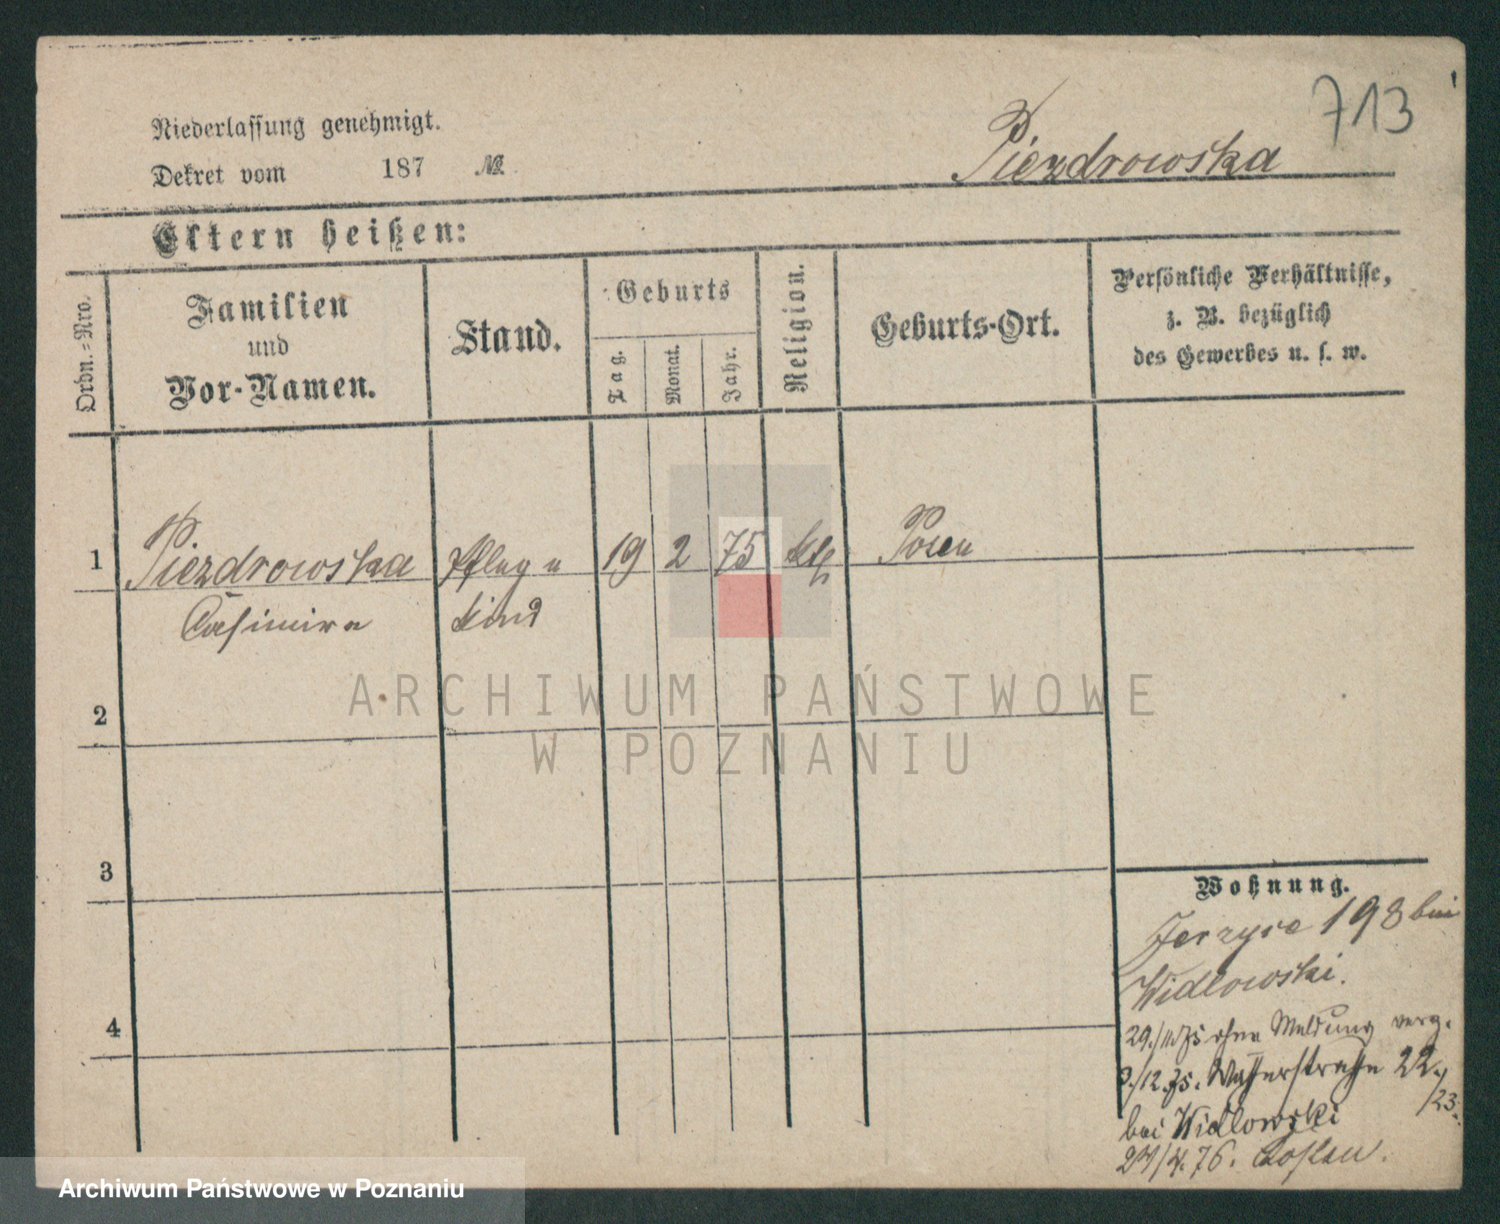 713
Niederlassung genehmigt.
Piezdrowska
Dekret vom 187 №
Eltern heißen:
Ordn.-Nro.
Familien
und
Vor-Namen.
Stand.
Geburts
Tag.
Monat.
Jahr.
Religion.
Geburts-Ort.
Persönliche Verhältnisse,
z. B. bezüglich
des Gewerbes u. s. w.
1 Piezdrowska Pflege 19 2 75 kth Posen
Casimira kind
2
3
4
Wohnung.
Jerzyce 198 bei
Widlowski.
29./11 75 ohne Meldung verz.
3./12. 75. Wasserstraße 22./
/23.
bei Widlowski
/4. 76.
ARCHIWUM PAŃSTWOWE
W POZNANIU
Archiwum Państwowe w Poznaniu